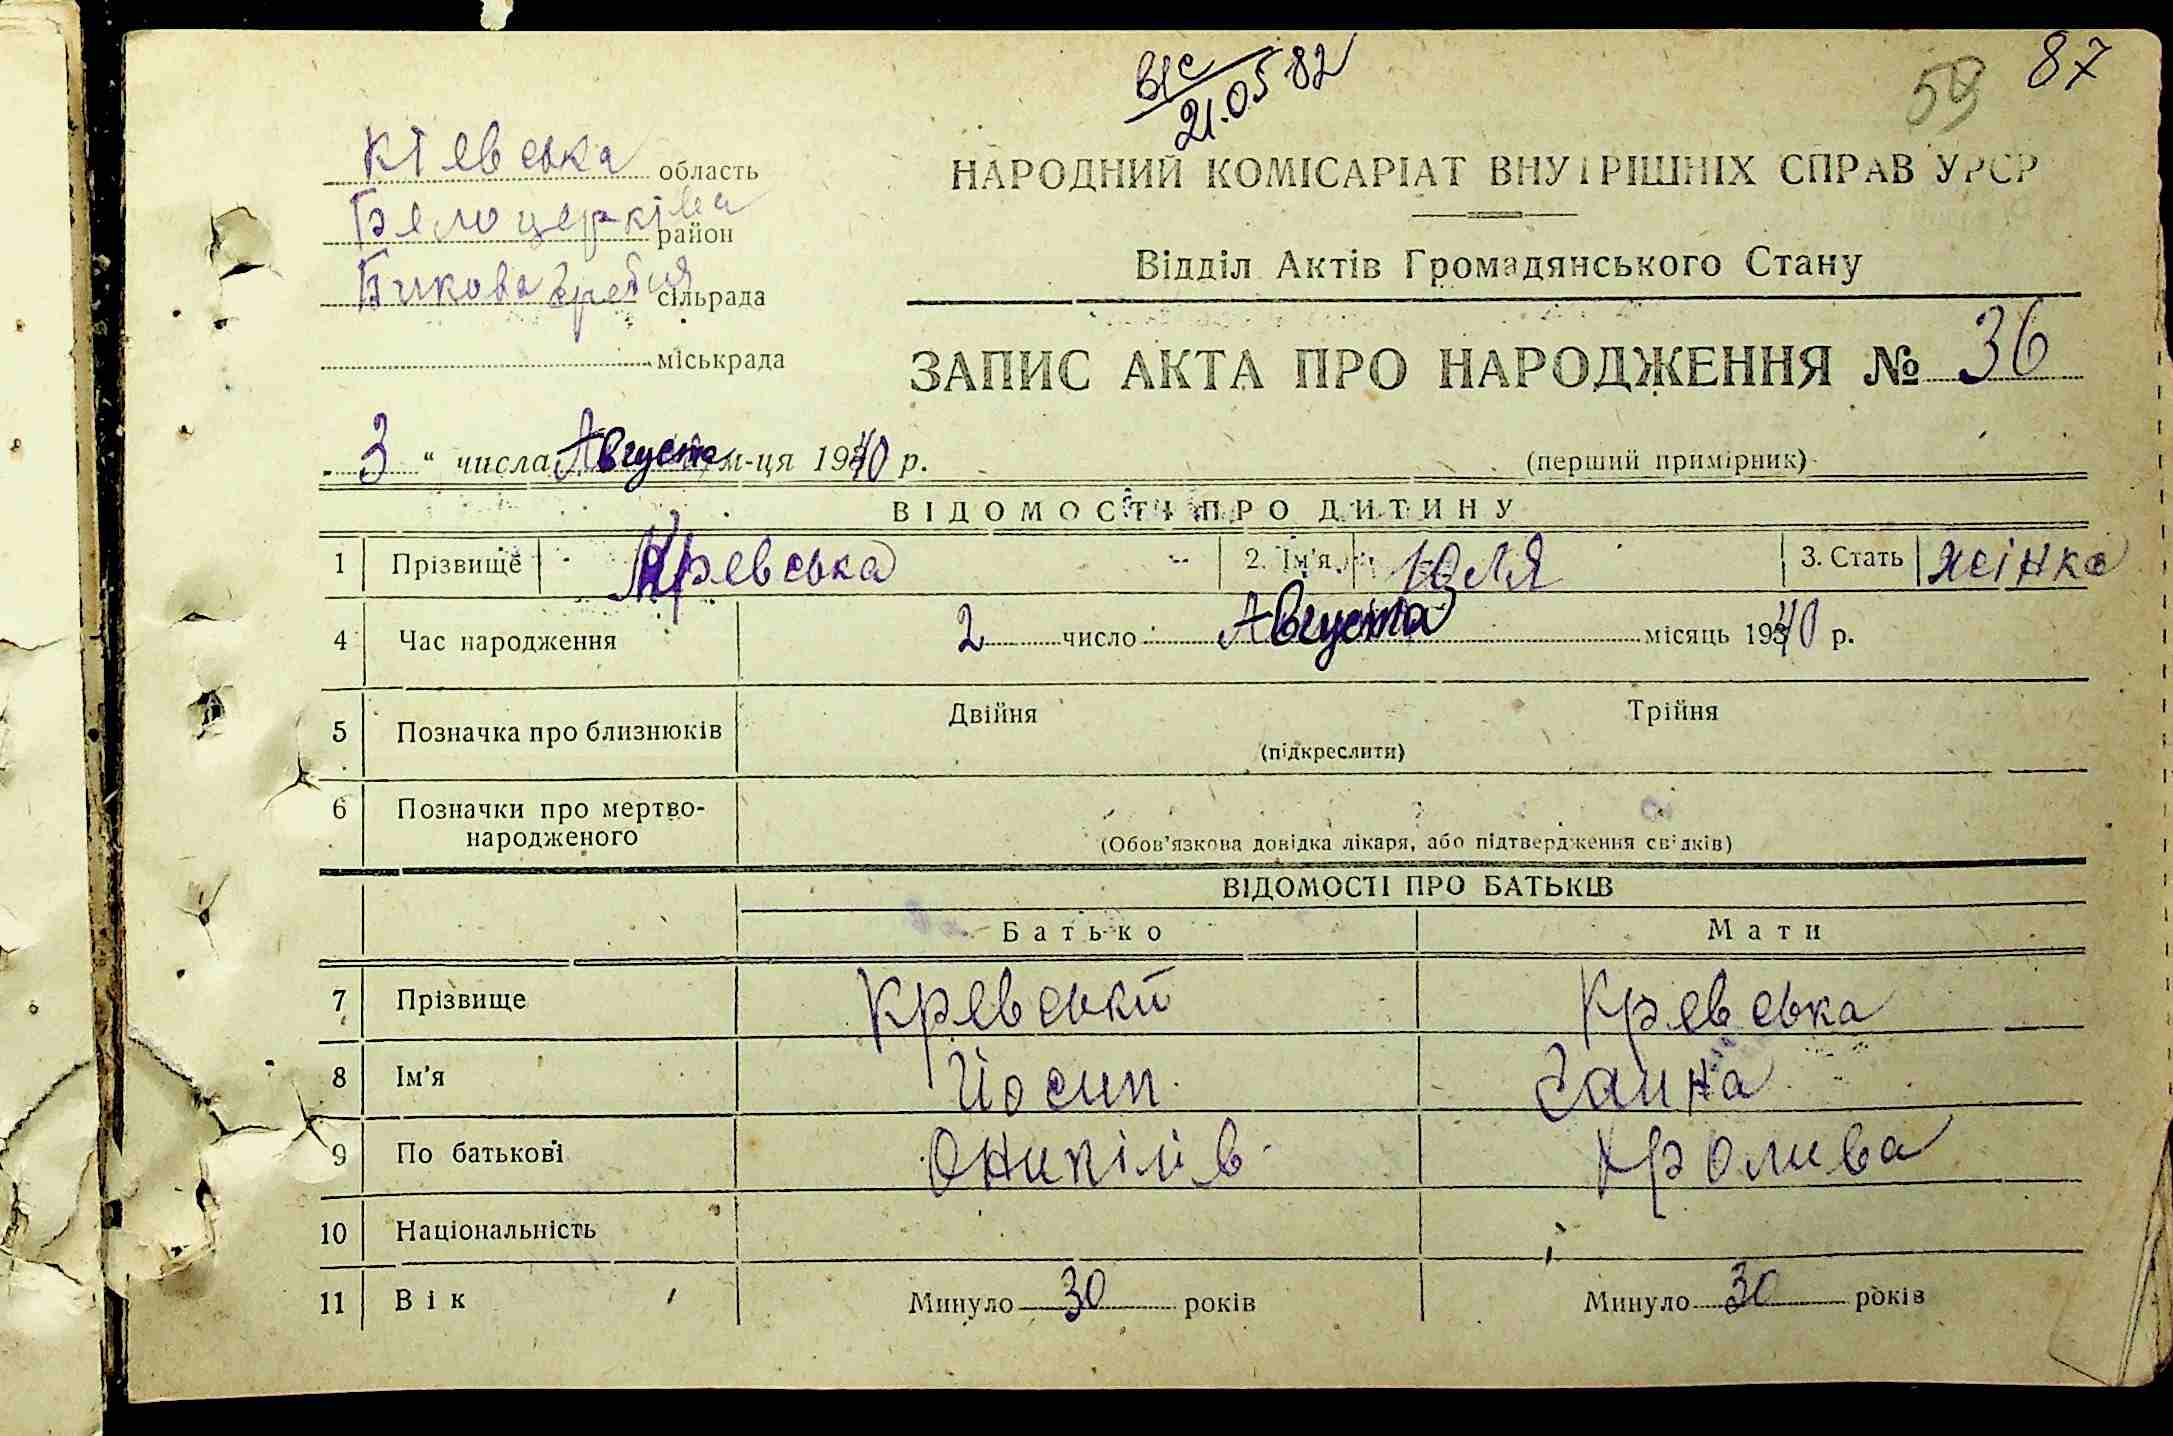 в/с
21.05 82
59 87
Кіевська область
Бялоцерківа район
Бикова Гребля сільрада
міськрада
НАРОДНИЙ КОМІСАРІАТ ВНУТРІШНІХ СПРАВ УРСР
Відділ Актів Громадянського Стану
ЗАПИС АКТА ПРО НАРОДЖЕННЯ № 36
„ 3 “ числа Августа м-ця 1940 р. (перший примірник)
ВІДОМОСТІ ПРО ДИТИНУ
1 Прізвище Кревська 2. Ім'я Юля 3. Стать жінка
4 Час народження 2 число Августа місяць 1940 р.
5 Позначка про близнюків Двійня Трійня
(підкреслити)
6 Позначки про мертво-
народженого
(Обов'язкова довідка лікаря, або підтвердження свідків)
ВІДОМОСТІ ПРО БАТЬКІВ
Батько Мати
7 Прізвище Кревський Кревська
8 Ім'я Йосип Ганна
9 По батькові
10 Національність
11 Вік Минуло 30 років Минуло 30 років